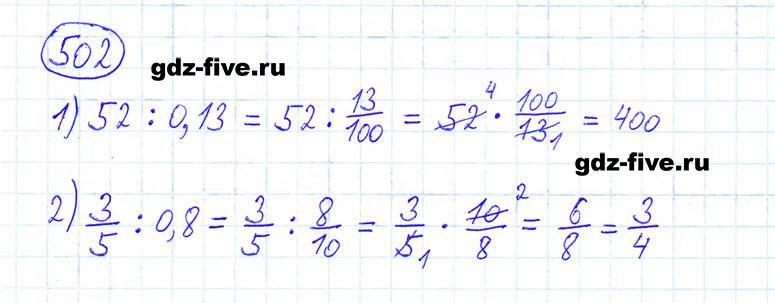 502
gdz-five.ru
1) 52 : 0,13 = 52 : 13/100 = 52 4 · 100/13 1 = 400
gdz-five.ru
2) 3/5 : 0,8 = 3/5 : 8/10 = 3/5 1 · 10 2/8 = 6/8 = 3/4